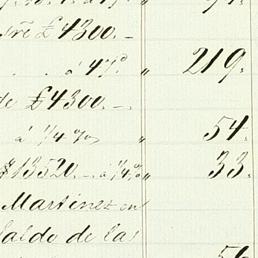 £4300.-
á 4% " 219.
de £4300.-.
á 1/4 % " 54.
$13520.- á 1/4 % " 33.
Martinez en
saldo de las